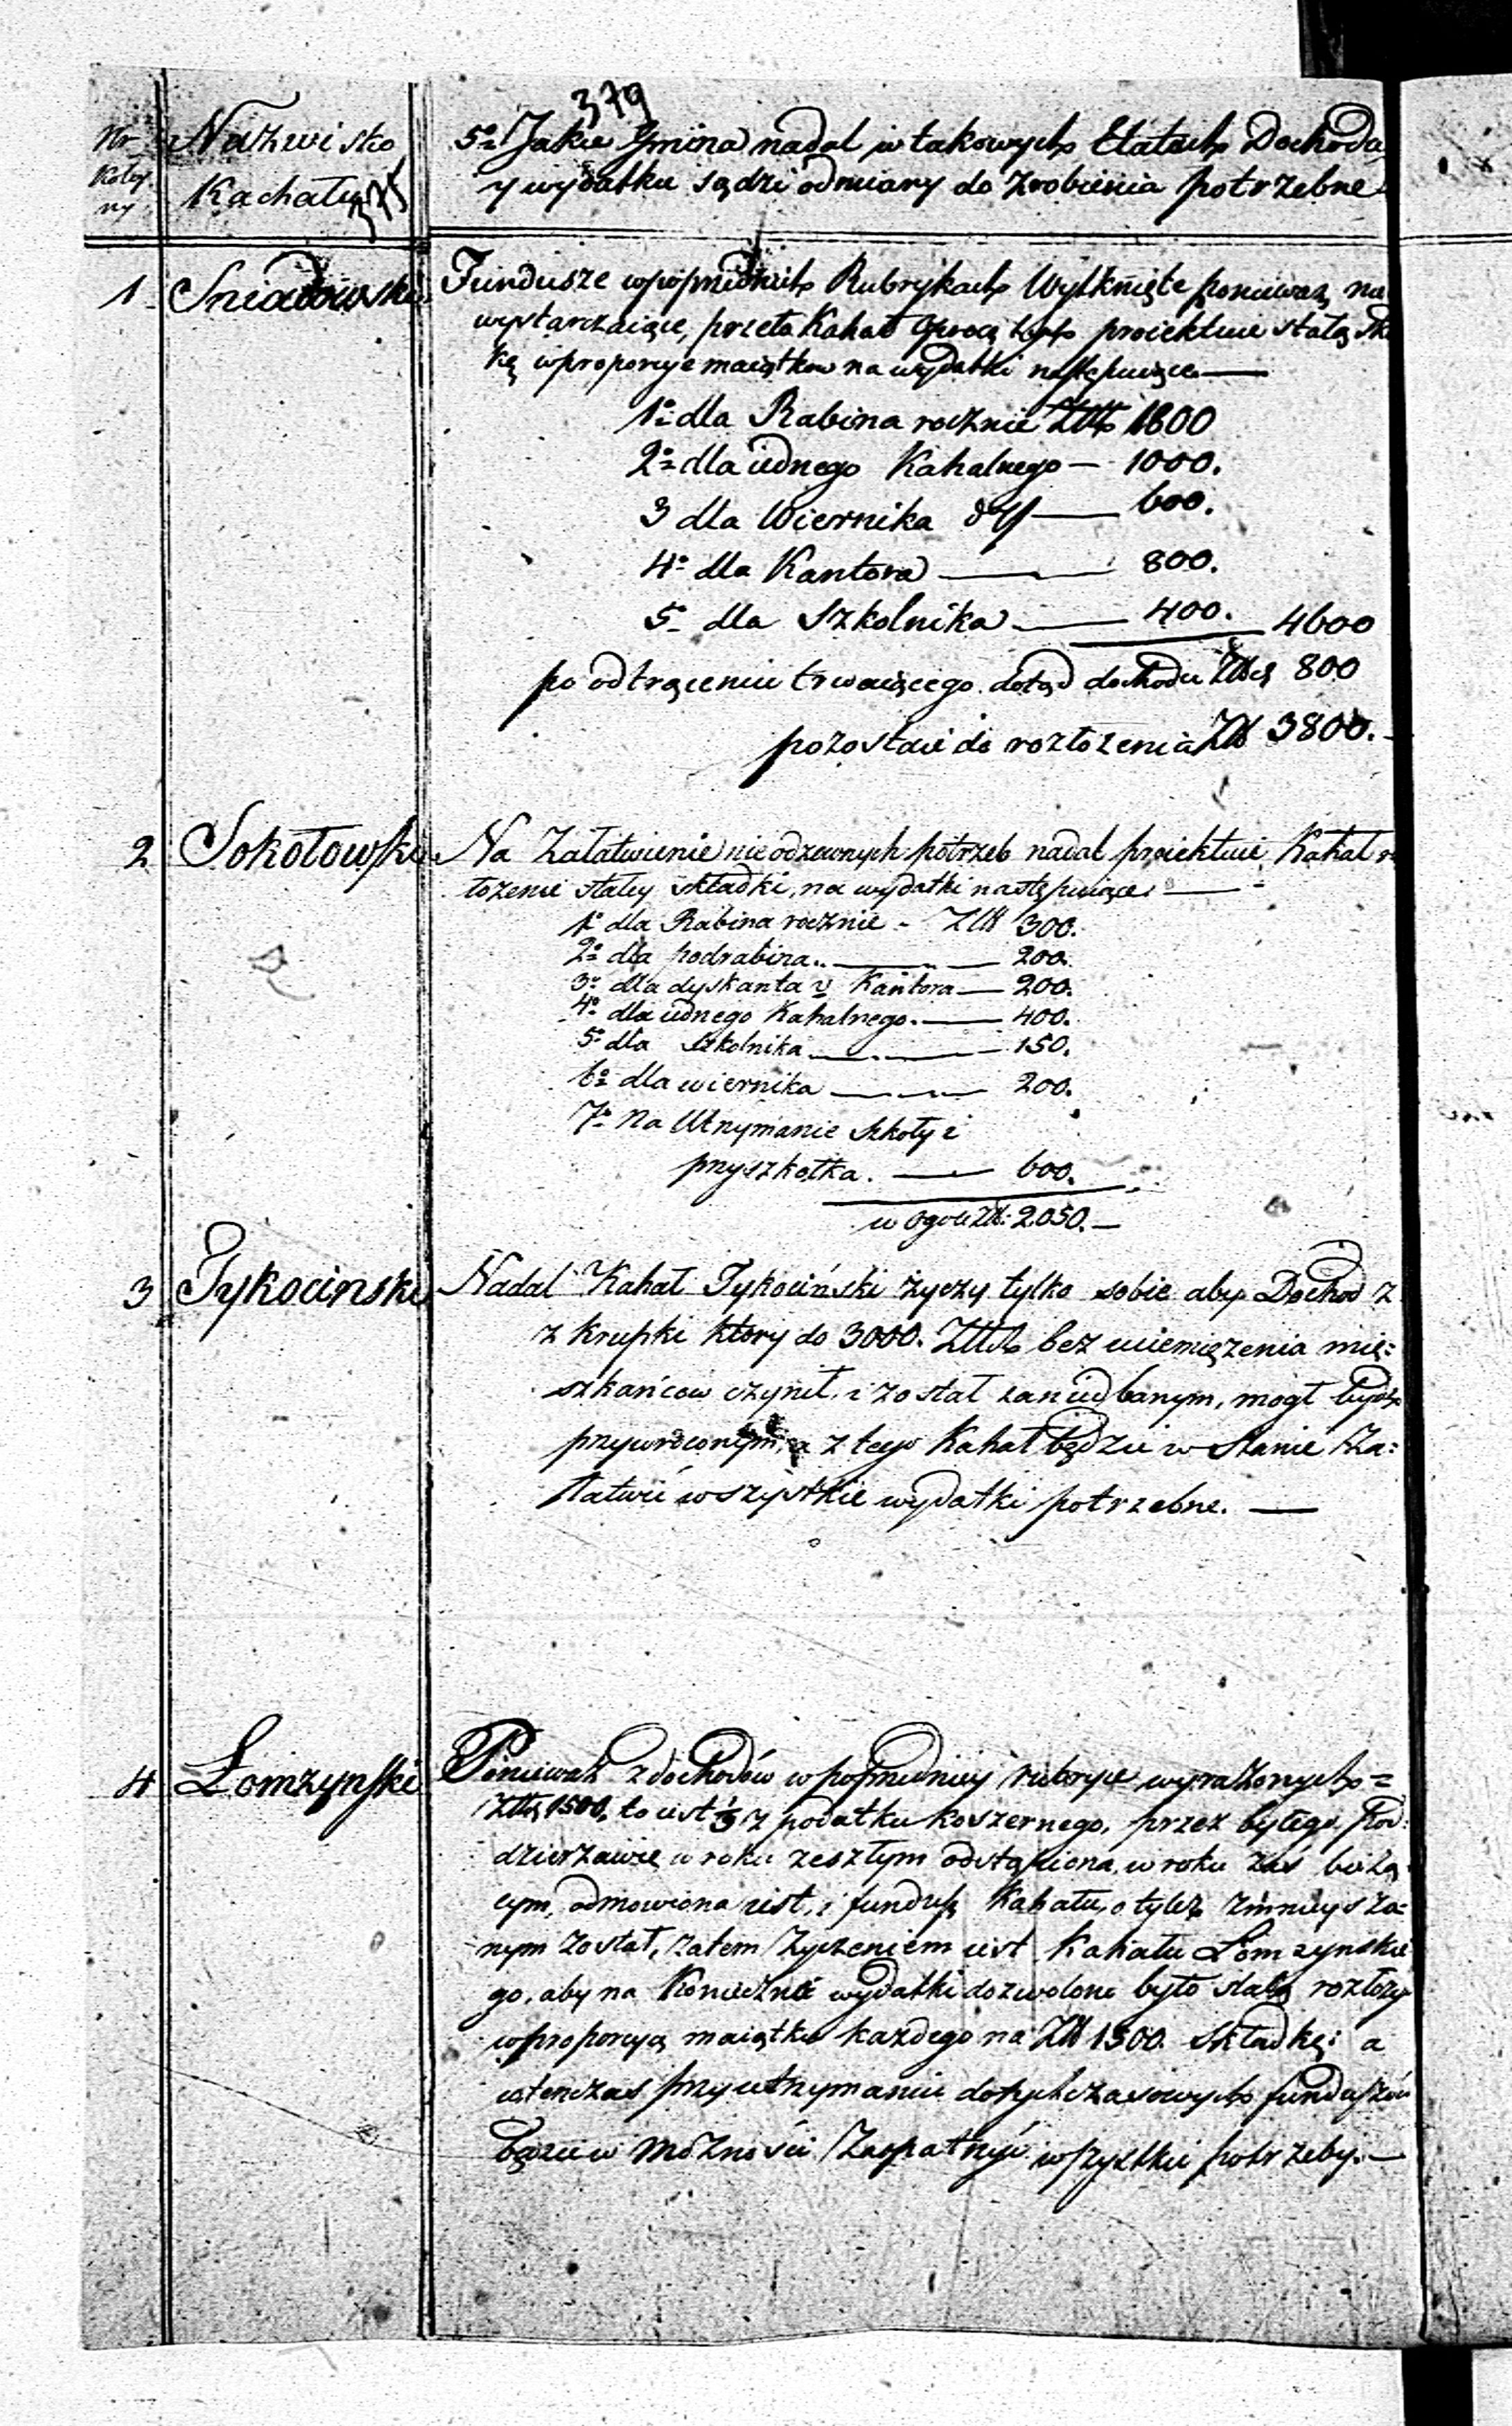 379
Nr
koley
ny
Nazwisko
Kachału
375
5o Jakie Gmina nadal w takowych Etatach Dochodu
y wydatku sądzi odmiany do zrobienia potrzebne
1 Sniadowski
Fundusze w poprzednich Rubrykach Wytknięte ponieważ nie
wystarczaiące, przeto Kahał oprócz tych proiektuie stałą skł
kę w proporcye maiątkow na wydatki następuiące —
1o dla Rabina rocznie Złłp 1800
2o dla iednego Kahalnego — 1000.
3 dla Wiernika — 600.
4o dla Kantora — 800.
5o dla Szkolnika — 400. 4600
po odtrąceniu trwaiącego dotąd dochodu Złł 800
pozostaie do rozłożenia Złł 3800. —
2 Sokołowski
Na Załatwienie nieodzownych potrzeb nadal proiektuie Kahał ro
łożenie stałey składki, na wydatki następuiące: —
1o dla Rabina rocznie - Złł 300.
2o dla podrabina .. — 200.
3o dla dyskanta v Kantora — 200.
4o dla iednego Kahalnego. — 400.
5o dla Szkolnika — 150.
6o dla wiernika — 200.
7o Na Utrzymanie Szkoły i
przyszkołka. — 600.
w ogóle Złł: 2.050. —
3 Tykocinski
Nadal Kahał Tykociński życzy tylko sobie aby Dochod z
z Krupki ktory do 3000. Złłch bez uciemiężenia mię:
szkańcow czynił, i został zaniedbanym, mogł bydź
przywroconym, a z tego Kahał będzie w Stanie Za:
łatwić wszystkie wydatki potrzebne. —
4 Łomzynski
Ponieważ z dochodów w poprzedniey rubryce wyrażonych =
Złł 1500, to iest 1/3 z podatku koszernego, przez byłego Pod:
dzierżawcę w roku zeszłym odstąpiona, w roku zaś bieżą
cym, odmowiona iest, i fundusz Kahału o tyleż zmnieysza=
nym został, zatem Życzeniem iest Kahału Łomzynskie
go, aby na Konieczne wydatki dozwolone było stałą rozłoży
w proporcyą maiątku każdego na Złł 1500. Składkę: a
wtenczas przy utrzymaniu dotychczasowych funduszów
będzie w możności Zaopatrzyć wszystkie potrzeby. —